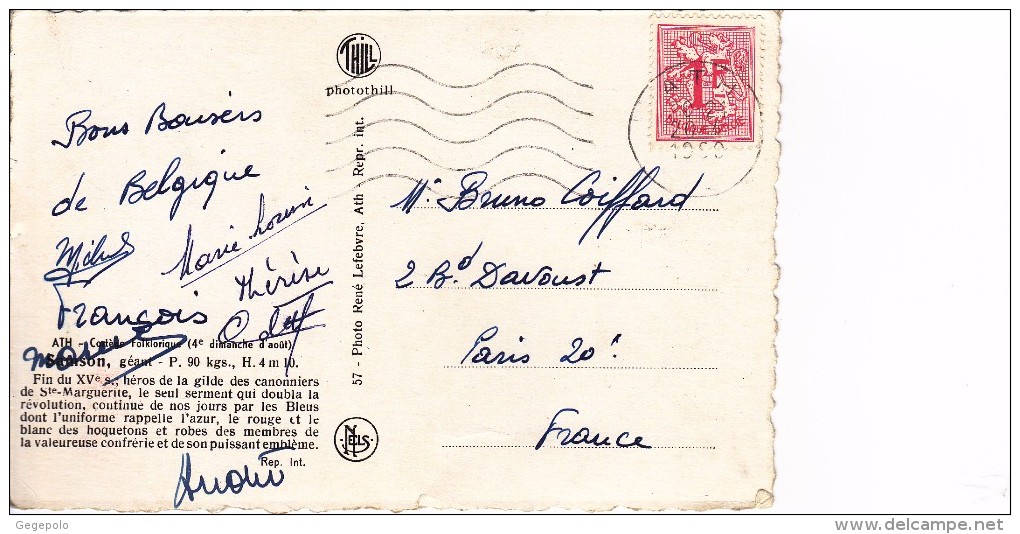 THILL
photothill
1F
1960
Bons Baisers
de Belgique
Michel
Marie-Louise
François
Thérèse
ATH - Cortège Folklorique (4e dimanche d'août)
Samson, géant - P. 90 kgs., H. 4 m 10.
Fin du XVe s., héros de la gilde des canonniers
de Ste-Marguerite, le seul serment qui doubla la
révolution, continue de nos jours par les Bleus
dont l'uniforme rappelle l'azur, le rouge et le
blanc des hoquetons et robes des membres de
la valeureuse confrérie et de son puissant emblème.
Rep. Int.
André
57 - Photo René Lefebvre, Ath - Repr. int.
NELS
Mr Bruno Coiffard
2 Bd Davoust
Paris 20e
France
Gegepolo
www.delcampe.net